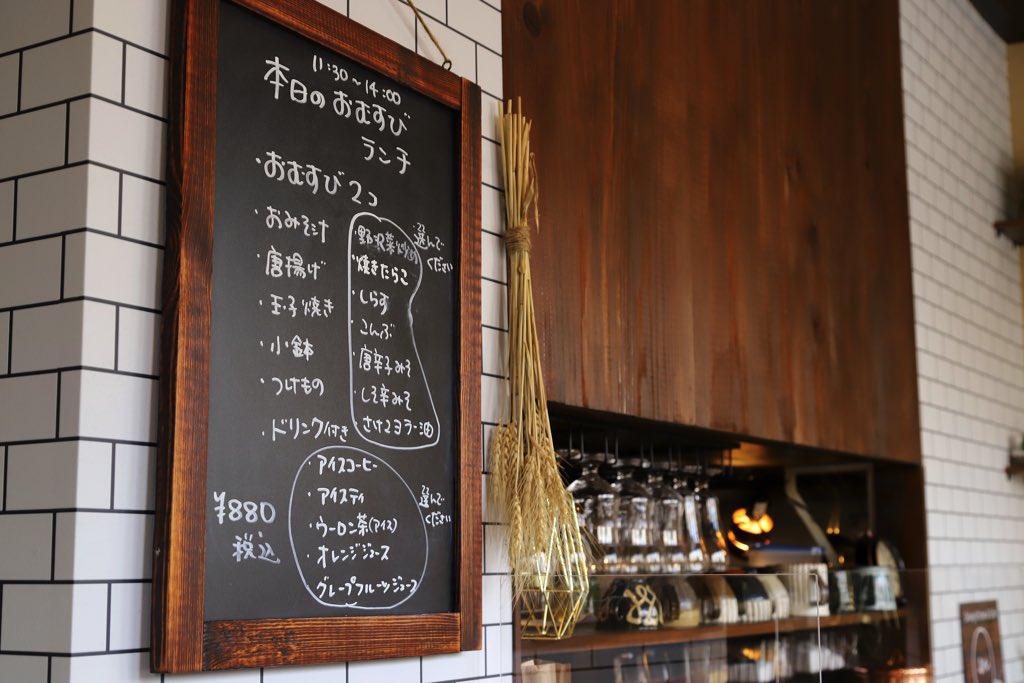 11:30～14:00
本日のおむすび
ランチ
・おむすび 2コ
・おみそ汁
・唐揚げ
・玉子焼き
・小鉢
・つけもの
・ドリンク付き
選んで
ください
・野沢菜
・焼きたらこ
・しらす
・こんぶ
・唐辛子みそ
・しそ辛みそ
さけマヨラー油
・アイスコーヒー
・アイスティ
・ウーロン茶(アイス)
・オレンジジュース
グレープフルーツジュース
選んで
ください
¥880
税込